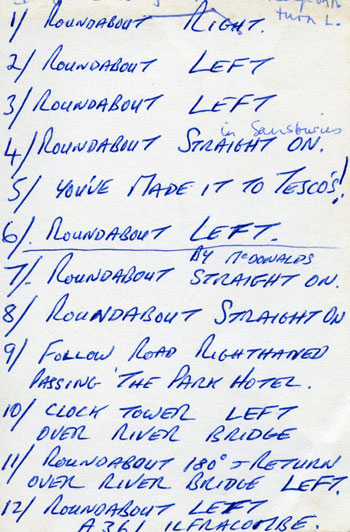 turn L.
1/ ROUNDABOUT RIGHT.
2/ ROUNDABOUT LEFT
3/ ROUNDABOUT LEFT
in Sainsburies
4/ ROUNDABOUT STRAIGHT ON.
5/ YOU'VE MADE IT TO TESCO'S!
6/. ROUNDABOUT LEFT.
BY McDONALDS
7/- ROUNDABOUT STRAIGHT ON.
8/ ROUNDABOUT STRAIGHT ON
9/ FOLLOW ROAD RIGHTHANED
PASSING 'THE PARK HOTEL.
10/ CLOCK TOWER LEFT
OVER RIVER BRIDGE
11/ ROUNDABOUT 180° RETURN
OVER RIVER BRIDGE LEFT.
12/ ROUNDABOUT LEFT
A361 ILFRACOMBE.